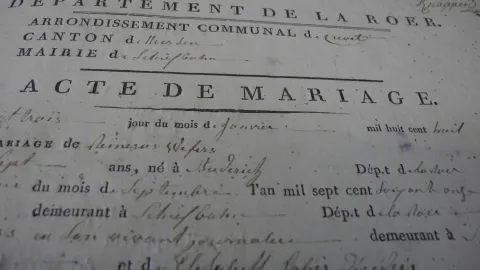 DÉPARTEMENT DE LA ROER.
ARRONDISSEMENT COMMUNAL de Crevelt
CANTON de Neersen
MAIRIE de Schiefbahn
ACTE DE MARIAGE.
trois jour du mois de Janvier mil huit cent huit
MARIAGE de Reinerus Wefers
sept ans, né à Büderich Dép.t de la Roer
du mois de Septembre l'an mil sept cent soixante onze
demeurant à Schiefbahn Dép.t de la Roer
en son vivant journalier demeurant à
et de Elisabeth